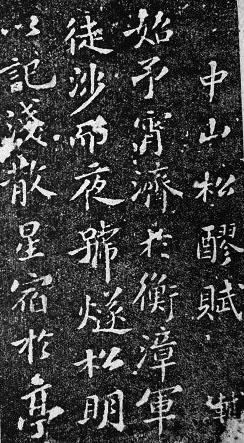 中山松醪賦
始予宵濟於衡漳軍
徒涉而夜號燧松明
以記淺散星宿於亭